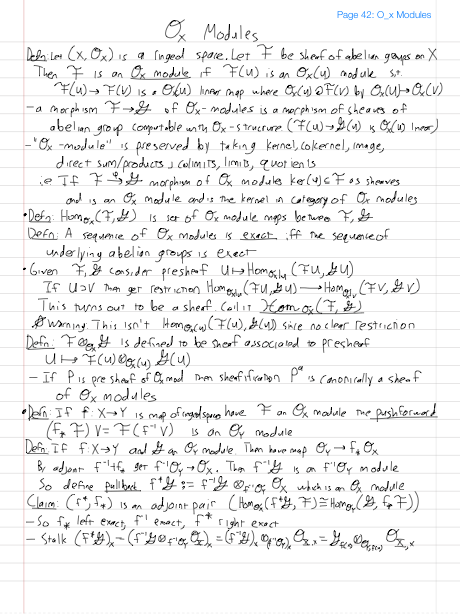 Page 42: O_x Modules
O_X Modules
Defn: Let (X, O_X) is a ringed space. Let F be sheaf of abelian groups on X
Then F is an O_X module if F(U) is an O_X(U) module s.t.
F(U) → F(V) is a O_X(U) linear map where O_X(U) ↻ F(V) by O_X(U) → O_X(V)
- a morphism F → G of O_X-modules is a morphism of sheaves of
abelian group compatable with O_X-structure (F(U) → G(U) is O_X(U) linear)
- "O_X-module" is preserved by taking kernel, cokernel, image,
direct sum/products, colimits, limits, quotients
i.e If F →φ G morphism of O_X modules ker(φ) ⊆ F as sheaves
and is an O_X module and is the kernel in category of O_X modules
• Defn: Hom_{O_X}(F, G) is set of O_X module maps between F, G
Defn: A sequence of O_X modules is exact iff the sequence of
underlying abelian groups is exact
• Given F, G consider presheaf U ↦ Hom_{O_X|U}(F|U, G|U)
If U ⊃ V then get restriction Hom_{O_X|U}(F|U, G|U) → Hom_{O_X|V}(F|V, G|V)
This turns out to be a sheaf. Call it Hom_{O_X}(F, G)
Warning: This isn't Hom_{O_X(U)}(F(U), G(U)) since no clear restriction
Defn: F ⊗_{O_X} G is defined to be sheaf associated to presheaf
U ↦ F(U) ⊗_{O_X(U)} G(U)
- If P is presheaf of O_X mod then sheafification P^a is canonically a sheaf
of O_X modules
• Defn: If f: X → Y is map of ringed spaces have F an O_X module the pushforward
(f_* F) V = F(f^{-1} V) is an O_Y module
Defn: If f: X → Y and G an O_Y module. Then have map O_Y → f_* O_X
By adjoint f^{-1} f_* get f^{-1} O_Y → O_X. Then f^{-1} G is an f^{-1} O_Y module
So define pullback f^* G := f^{-1} G ⊗_{f^{-1} O_Y} O_X which is an O_X module
Claim: (f^*, f_*) is an adjoint pair (Hom_{O_X}(f^* G, F) ≅ Hom_{O_Y}(G, f_* F))
- So f_* left exact, f^{-1} exact, f^* right exact
- Stalk (f^* G)_x = (f^{-1} G ⊗_{f^{-1} O_Y} O_X)_x = (f^{-1} G)_x ⊗_{(f^{-1} O_Y)_x} O_{X,x} = G_{f(x)} ⊗_{O_{Y,f(x)}} O_{X,x}